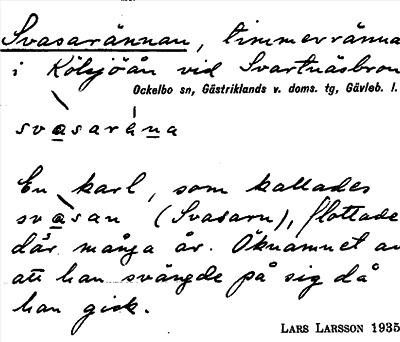 Svasarännan, timmerränna
i Kölsjöån vid Svartnäsbron
Ockelbo sn, Gästriklands v. doms. tg, Gävleb. l.
svasaräna
En karl, som kallades
svasan (Svasarn), flottade
där många år. Öknamnet av
att han svängde på sig då
han gick.
LARS LARSSON 1935